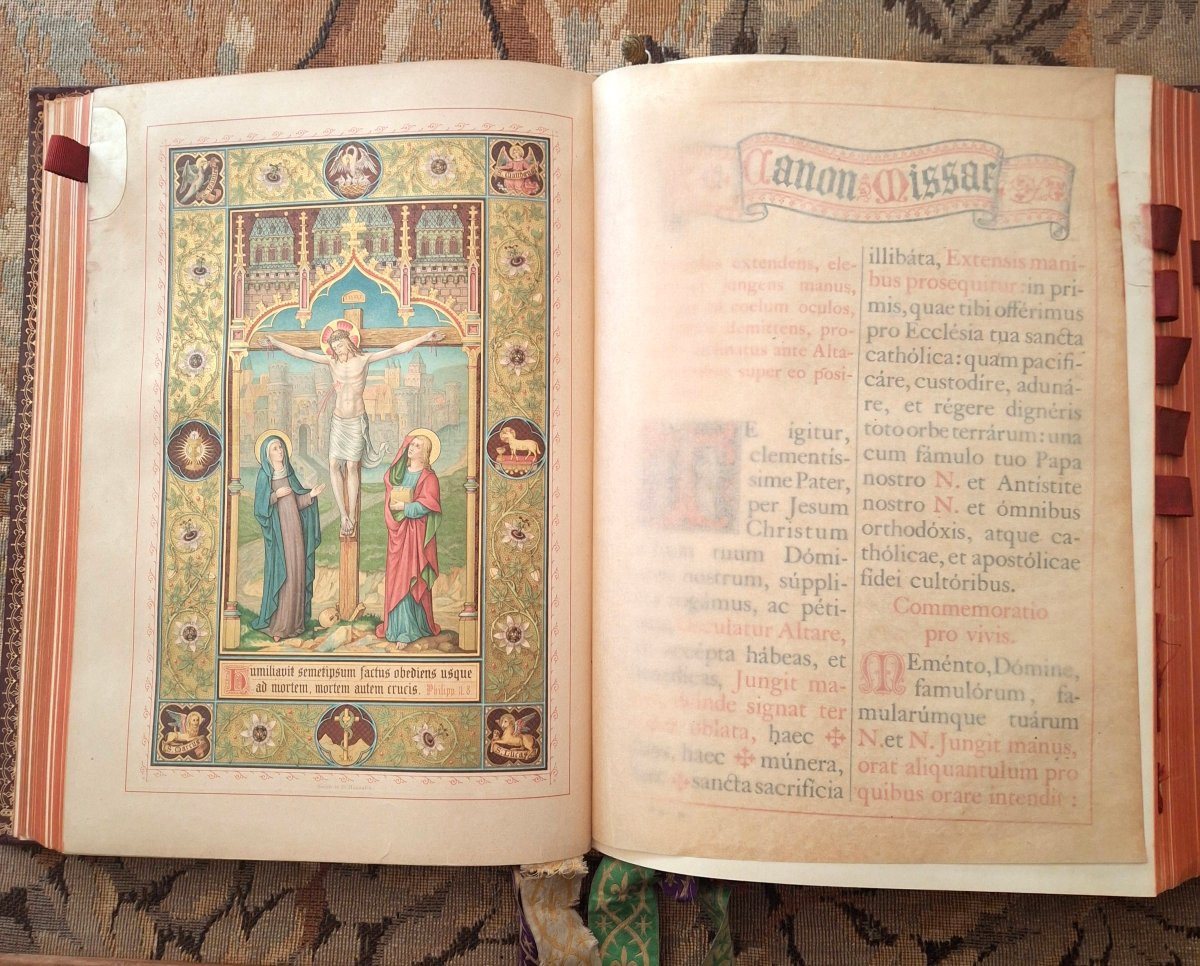 Humiliavit semetipsum factus obediens usque
ad mortem, mortem autem crucis. Philipp. II. 8.
S. MARCUS
S. LUCAS
Canon Missae
extendens, ele-
jungens manus,
coelum oculos,
demittens, pro-
ante Alta-
super eo posi-
TE ígitur,
clementís-
sime Pater,
per Jesum
Christum
tuum Dómi-
nostrum, súppli-
rogámus, ac péti-
osculatur Altare,
accépta hábeas, et
Jungit ma-
deinde signat ter
oblata, hæc ✠
hæc ✠ múnera,
✠ sancta sacrifícia
illibáta, Extensis mani-
bus prosequitur: in pri-
mis, quae tibi offérimus
pro Ecclésia tua sancta
cathólica: quam pacifi-
cáre, custodíre, aduná-
re, et régere dignéris
toto orbe terrárum: una
cum fámulo tuo Papa
nostro N. et Antístite
nostro N. et ómnibus
orthodóxis, atque ca-
thólicae, et apostólicae
fidei cultóribus.
Commemoratio
pro vivis.
MEménto, Dómine,
famulórum, fa-
mularúmque tuárum
N. et N. Jungit manus,
orat aliquantulum pro
quibus orare intendit: